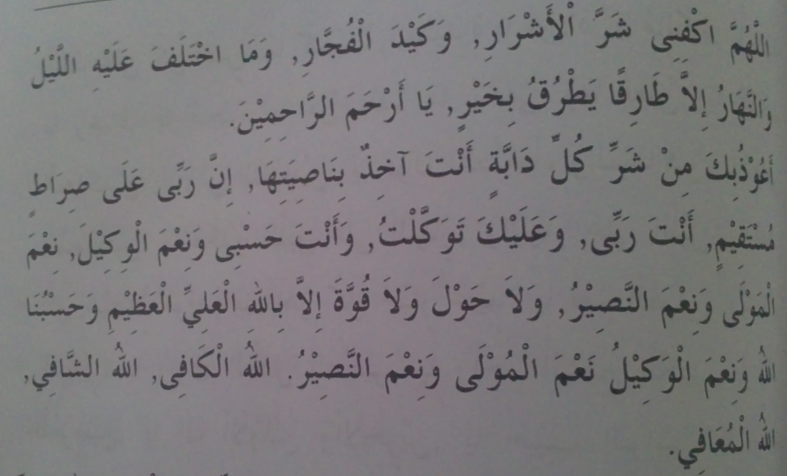 اللّٰهُمَّ اكْفِنِى شَرَّ اْلأَشْرَارِ, وَكَيْدَ الْفُجَّارِ, وَمَا اخْتَلَفَ عَلَيْهِ اللَّيْلُ
وَالنَّهَارُ إِلاَّ طَارِقًا يَطْرُقُ بِخَيْرٍ, يَا أَرْحَمَ الرَّاحِمِيْنَ.
أَعُوْذُبِكَ مِنْ شَرِّ كُلِّ دَابَّةٍ أَنْتَ آخِذٌ بِنَاصِيَتِهَا, إِنَّ رَبِّى عَلَى صِرَاطٍ
مُسْتَقِيْمٍ, أَنْتَ رَبِّى, وَعَلَيْكَ تَوَكَّلْتُ, وَأَنْتَ حَسْبِى وَنِعْمَ الْوِكِيْلَ, نِعْمَ
الْمَوْلَى وَنِعْمَ النَّصِيْرُ, وَلاَ حَوْلَ وَلاَ قُوَّةَ إِلاَّ بِاللهِ الْعَلِيِّ الْعَظِيْمِ وَحَسْبُنَا
اللهُ وَنِعْمَ الْوَكِيْلُ نَعْمَ الْمُوْلَى وَنِعْمَ النَّصِيْرُ. اللهُ الْكَافِى, اللهُ الشَّافِي,
اللهُ الْمُعَافِي.